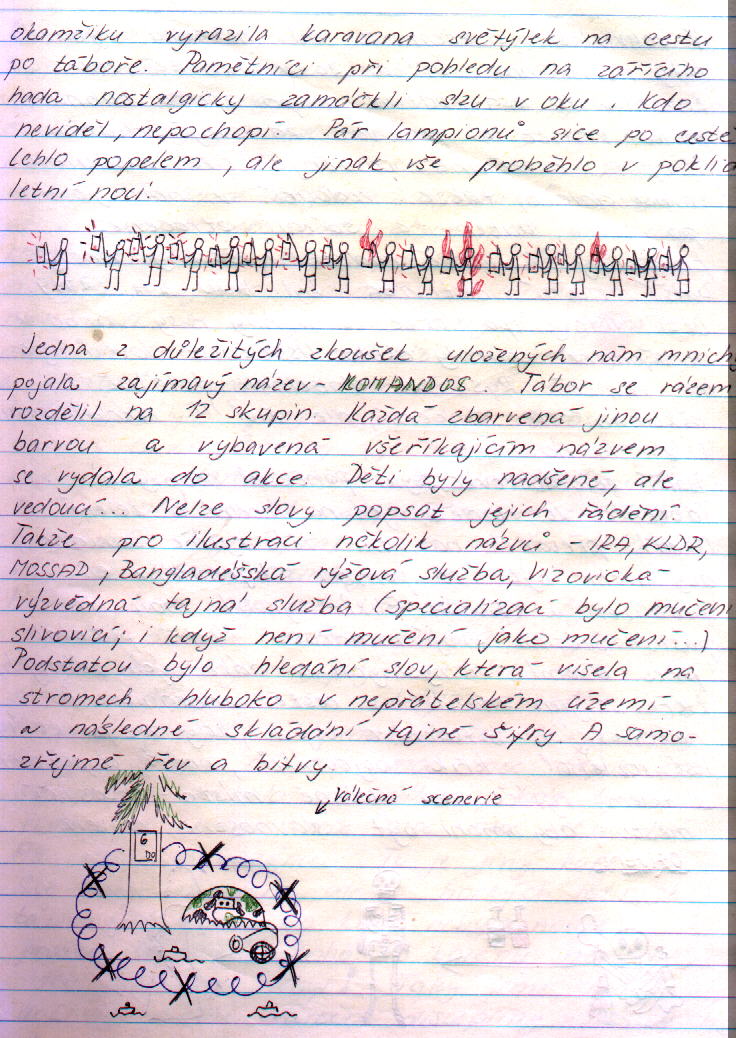 okamžiku vyrazila karavana světýlek na cestu
po táboře. Pamětníci při pohledu na zářícího
hada nostalgicky zamáčkli slzu v oku. Kdo
neviděl, nepochopí. Pár lampionů sice po cestě
lehlo popelem, ale jinak vše proběhlo v poklid
letní noci.
Jedna z důležitých zkoušek uložených nám mnichy
pojala zajímavý název - KOMANDOS. Tábor se rázem
rozdělil na 12 skupin. Každá zbarvená jinou
barvou a vybavená všeříkajícím názvem
se vydala do akce. Děti byly nadšené, ale
vedoucí... Nelze slovy popsat jejich řádění.
Takže pro ilustraci několik názvů - IRA, KLDR,
MOSSAD, Bangladéšská rýžová služba, Vizovická
výzvědná tajná služba (specializací bylo mučení
slivovicí; i když není mučení jako mučení...)
Podstatou bylo hledání slov, která visela na
stromech hluboko v nepřátelském území
a následné skládání tajné šifry. A samo-
zřejmě řev a bitvy.
válečná scenerie
6
DO